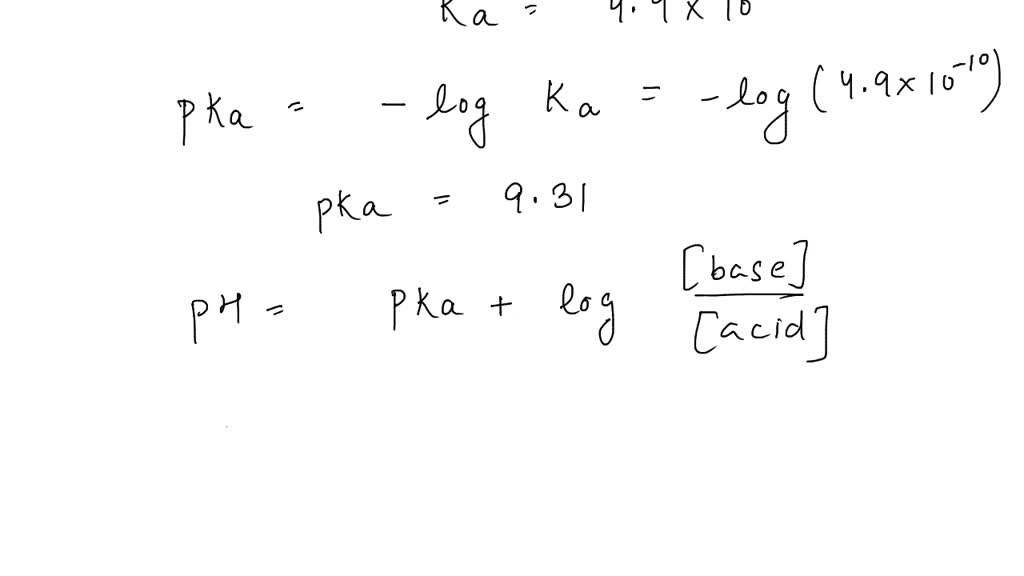 Ka = 4.9 x 10
pKa = - log Ka = - log (4.9 x 10^-10)
pKa = 9.31
pH = pKa + log [base]/[acid]